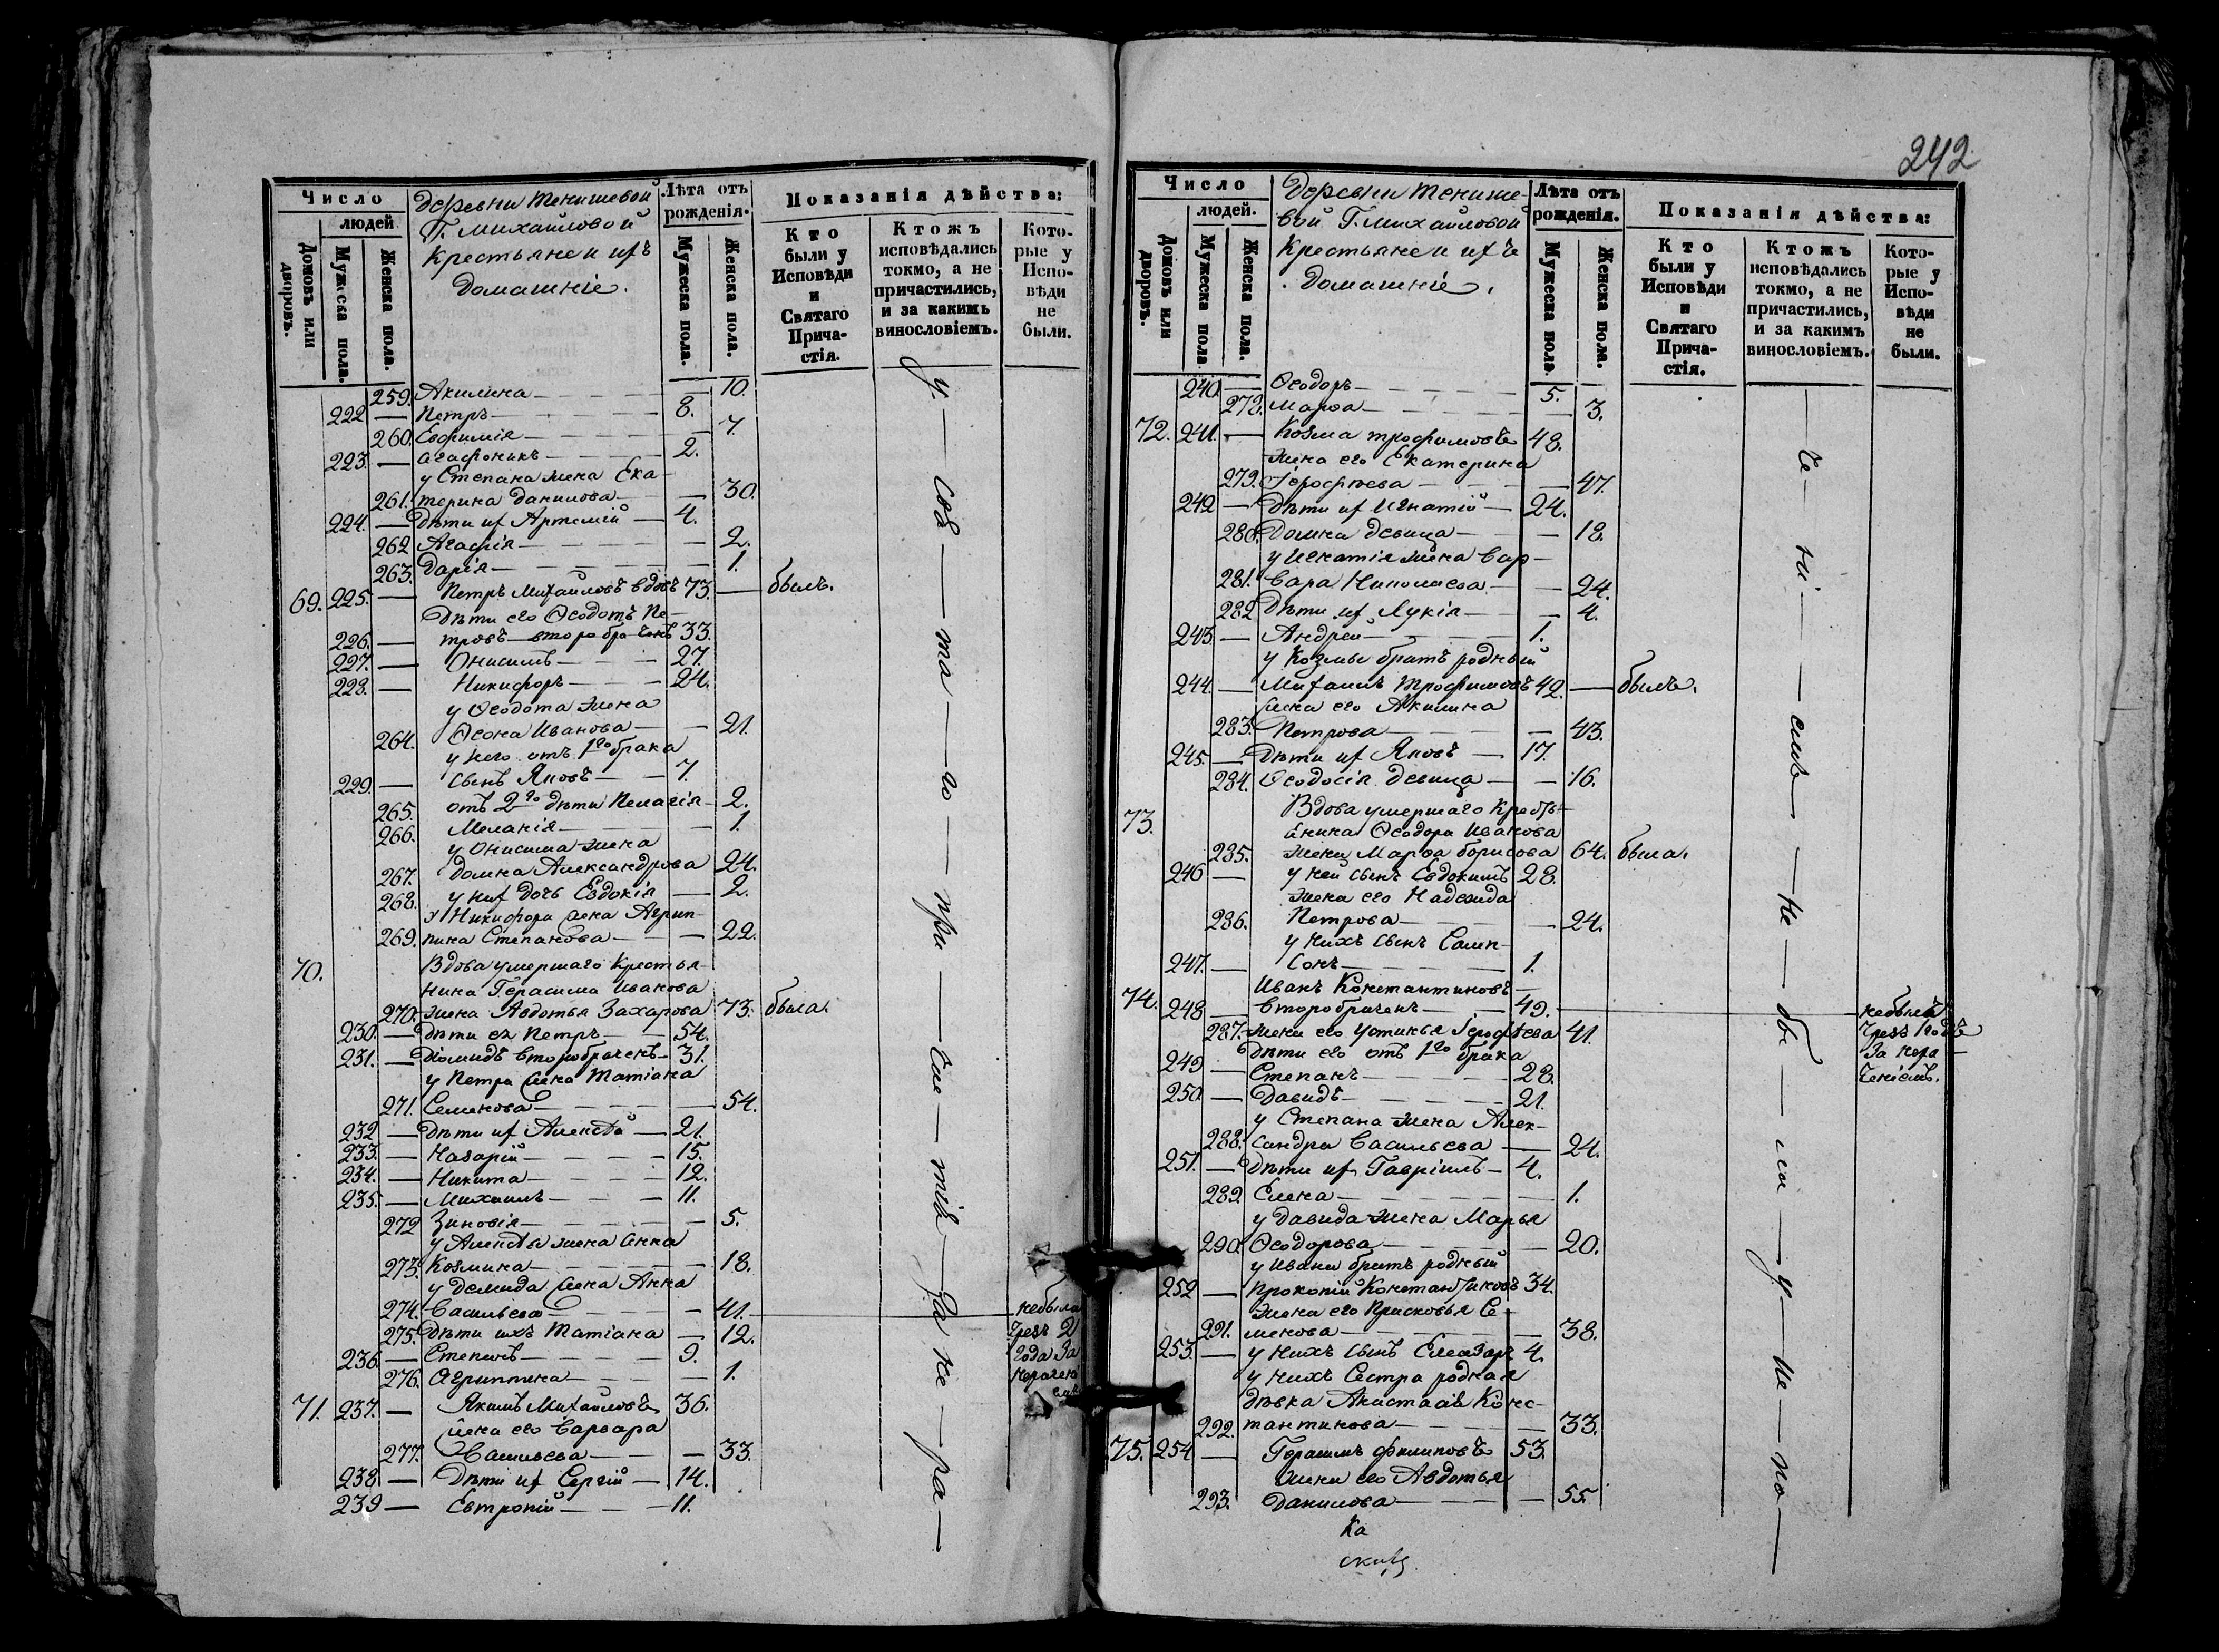 242
Число
людей
Домовъ или дворовъ.
Мужеска пола.
Женска пола.
Деревни Тенишевой
Г. Михайловой
Крестьяне и ихъ
Домашніе.
Лѣта отъ
рожденія.
Мужеска пола.
Женска пола.
Показанія дѣйства:
Кто
были у
Исповѣди
и
Святаго
Прича-
стія.
Ктожъ
исповѣдались
токмо, а не
причастились,
и за какимъ
винословіемъ.
Кото-
рые у
Испо-
вѣди
не
были.
259. Акилина — 10.
222 — Петръ — 8.
260. Евфимія — 7.
223. — Агафоникъ — 2.
у Степана жена Ека-
261. терина Данилова — 30.
224. — Дѣти их Артемій — 4.
262 Агафія — 2.
263. Дарія — 1.
69. 225. — Петръ Михайловъ вдовъ 73. — былъ.
Дѣти его Ѳеодотъ Пе-
226. — тровъ — второбраченъ 33.
227. — Онисимъ — 27.
228. — Никифоръ — 24.
у Ѳеодота жена
264. Ѳеона Иванова — 21.
у него отъ 1го брака
229. — сынъ Яковъ — 7.
265. отъ 2го дѣти Пелагія — 2.
266. Меланія — 1.
у Онисима жена
267. Домна Александрова 24.
268. у них дочь Евдокія — 2.
у Никифора жена Агрип-
269. пина Степанова — 22.
70. Вдова умершаго Крестья-
нина Герасима Иванова
270. жена Авдотья Захарова 73. была.
230. — Дѣти ея Петръ — 54.
231. — Діомидъ второбраченъ — 31.
у Петра жена Татіана
271. Семенова — 54.
232 — Дѣти их Алексѣй — 21.
233. — Назарій — 15.
234. — Никита — 12.
235. — Михаилъ — 11.
272 Зиновія — 5.
у Алексѣя жена Анна
273. Козмина — 18.
у Демида жена Анна
274. Васильева — 41. — небыла
275. Дѣти ихъ Татіана — 12. Чрезъ 2
236. — Степанъ — 9. года За
276. Агриппина — 1. нерачені
емъ
71. 237. — Якимъ Михайловъ 36.
жена его Варвара
277. Васильева — 33.
238 — Дѣти их Сергій — 14.
239 — Евтропій — 11.
у — сѡ — та — го — при — ча — тія — За не — ра —
Число
людей.
Домовъ или дворовъ.
Мужеска пола
Женска пола.
Деревни Тенише-
вой Г. Михайловой
Крестьяне и ихъ
Домашніе.
Лѣта отъ
рожденія.
Мужеска пола.
Женска пола.
Показанія дѣйства:
Кто
были у
Исповѣди
и
Святаго
Прича-
стія.
Ктожъ
исповѣдались
токмо, а не
причастились,
и за какимъ
винословіемъ.
Кото-
рые у
Испо-
вѣди
не
были.
240. — Ѳеодоръ — 5.
278. Марѳа — 3.
72. 241. — Козма Трофимовъ 48.
жена его Екатерина
279. Герофѣева — 47.
242 — Дѣти их Игнатій — 24.
280. Домна девица — 18.
у Игнатія жена Вар-
281. вара Николаева — 24.
282 Дѣти их Лукія — 4.
243 — Андрей — 1.
у Козмы братъ родный
244. — Михаилъ Трофимовъ 42. — былъ.
жена его Акилина
283. Петрова — 43.
245. — Дѣти их Яковъ — 17.
284. Ѳеодосія девица — 16.
73. Вдова умершаго Кресть-
янина Ѳеодора Иванова
285. жена Марѳа Борисова 64. была.
246 — у ней сынъ Евдокимъ 28.
жена его Надежда
286. Петрова — 24.
у нихъ сынъ Самп-
247. — сонъ — 1.
74. Иванъ Константиновъ —
248 — второбраченъ — 49. — небылъ
287. жена его Устинья Герофѣева 41. Чрезъ 1 годъ
Дѣти его отъ 1го брака За нера-
249 — Степанъ — 28. ченіемъ.
250. — Давидъ — 21.
у Степана жена Алек-
288. сандра Васильева — 24.
251. — Дѣти их Гавріилъ — 4.
289. Елена — 1.
у Давида жена Марья
290. Ѳеодорова — 20.
у Ивана братъ родный
252 — Прокопій Константиновъ 34.
жена его Прасковья Се-
291. менова — 38.
253. — у нихъ сынъ Елеазаръ 4.
у нихъ Сестра родная
дѣвка Анастасія Конс-
292. тантинова — 33.
75. 254 — Герасимъ Филиповъ 53.
жена его Авдотья
293. Данилова — 55.
— че — ні — емъ — Не — бы — ли — у — Ис — по —
Ка